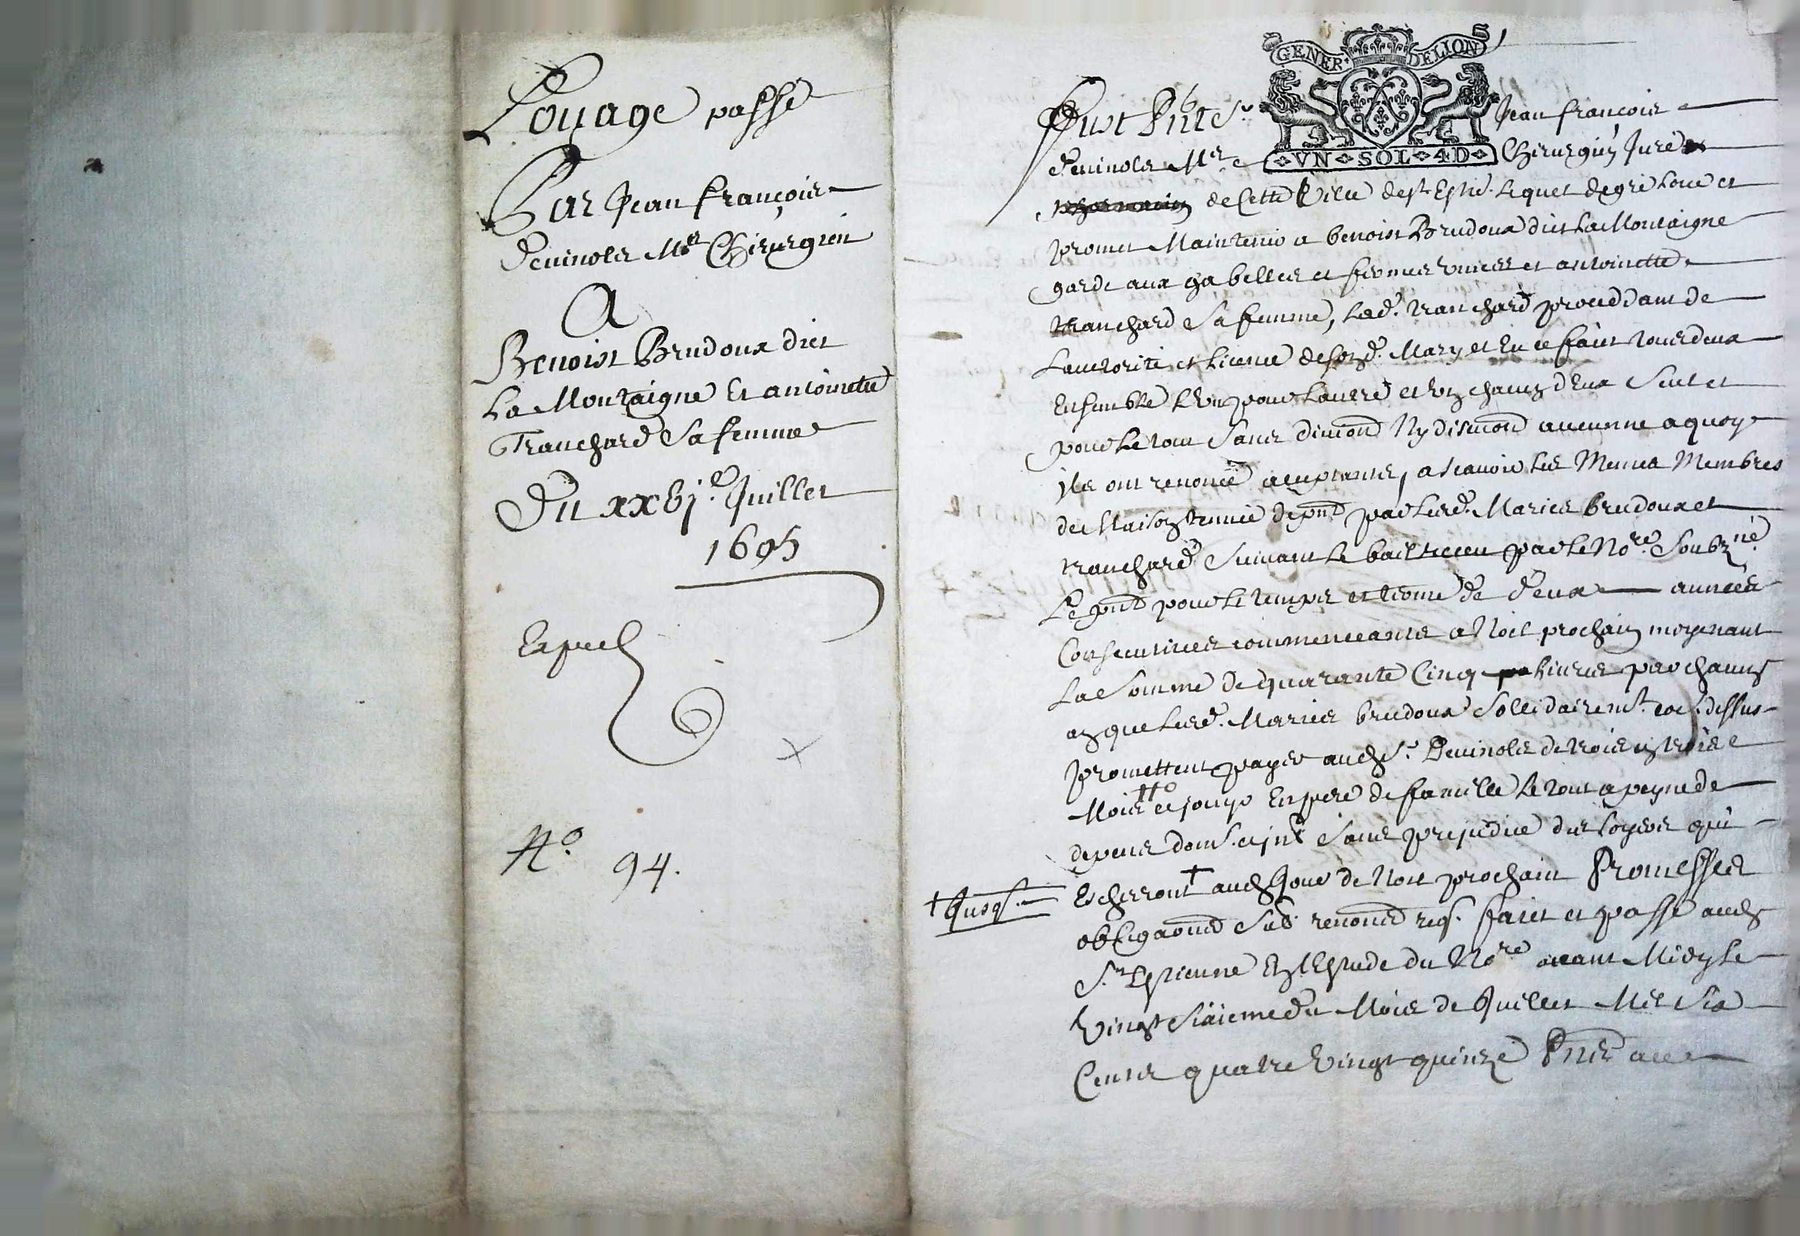 Louage passé
Par Jean françois
Deuinols Mre Chirurgien
A
Benoist Brudoux dict
La Montaigne Et antoinette
Tranchard Sa femme
Du xxbj.e Juillet
1695
Expeel
No. 94.
GENER. DE LION
VN SOL 4D
Fust Pnt Sr. Jean françois
Deuinols Mre Chirurgien Juré
de Cette Ville de St Estne. Lequel de gré Loue et
promet Maintenir a benoist Brudoux dict La Montaigne
garde aux gabelles et fermes vnies et antoinette
Tranchard Sa femme, Lad. Tranchard proceddant de
Lauthorité et Licence de sond. Mary et En ce faict tous deux
Ensemble L'vn pour Lautre et vn chacun d'Eux Seul et
pour Le tout Sans diuiond Ny discuond aucunne a quoy
ils ont renoncé acceptants, a scauoir Les Mesmes Membres
de Maison tenue de pnt par Lesd. Mariés brudoux et
tranchard Suiuant Le bail receu par Le Nore. Soubzné
Le pnt pour Le temps et terme de Deux années
Consecutiues commenceants a Noel prochain moyenant
La Somme de quarante Cinq Liures par chacun
an que Lesd. Mariés brudoux Sollidairemt. co. dessus
promettent payer aud Sr. Deuinols de trois en trois
Mois et jouyr En pere de famille Le tout a peyne de
depens dom. et jnt Sans prejudice des Loyers qui
Escherront † aud Jour de Noel prochain Promesses
† Jusq.
obligaond Sub. renoond req. faict et passé aud
St. Estienne En L'Estude du Nore auant Midy Le
Vingt Sixieme du Mois de Juillet Mil Six
Cents quatre Vingt quinze Pnts auec